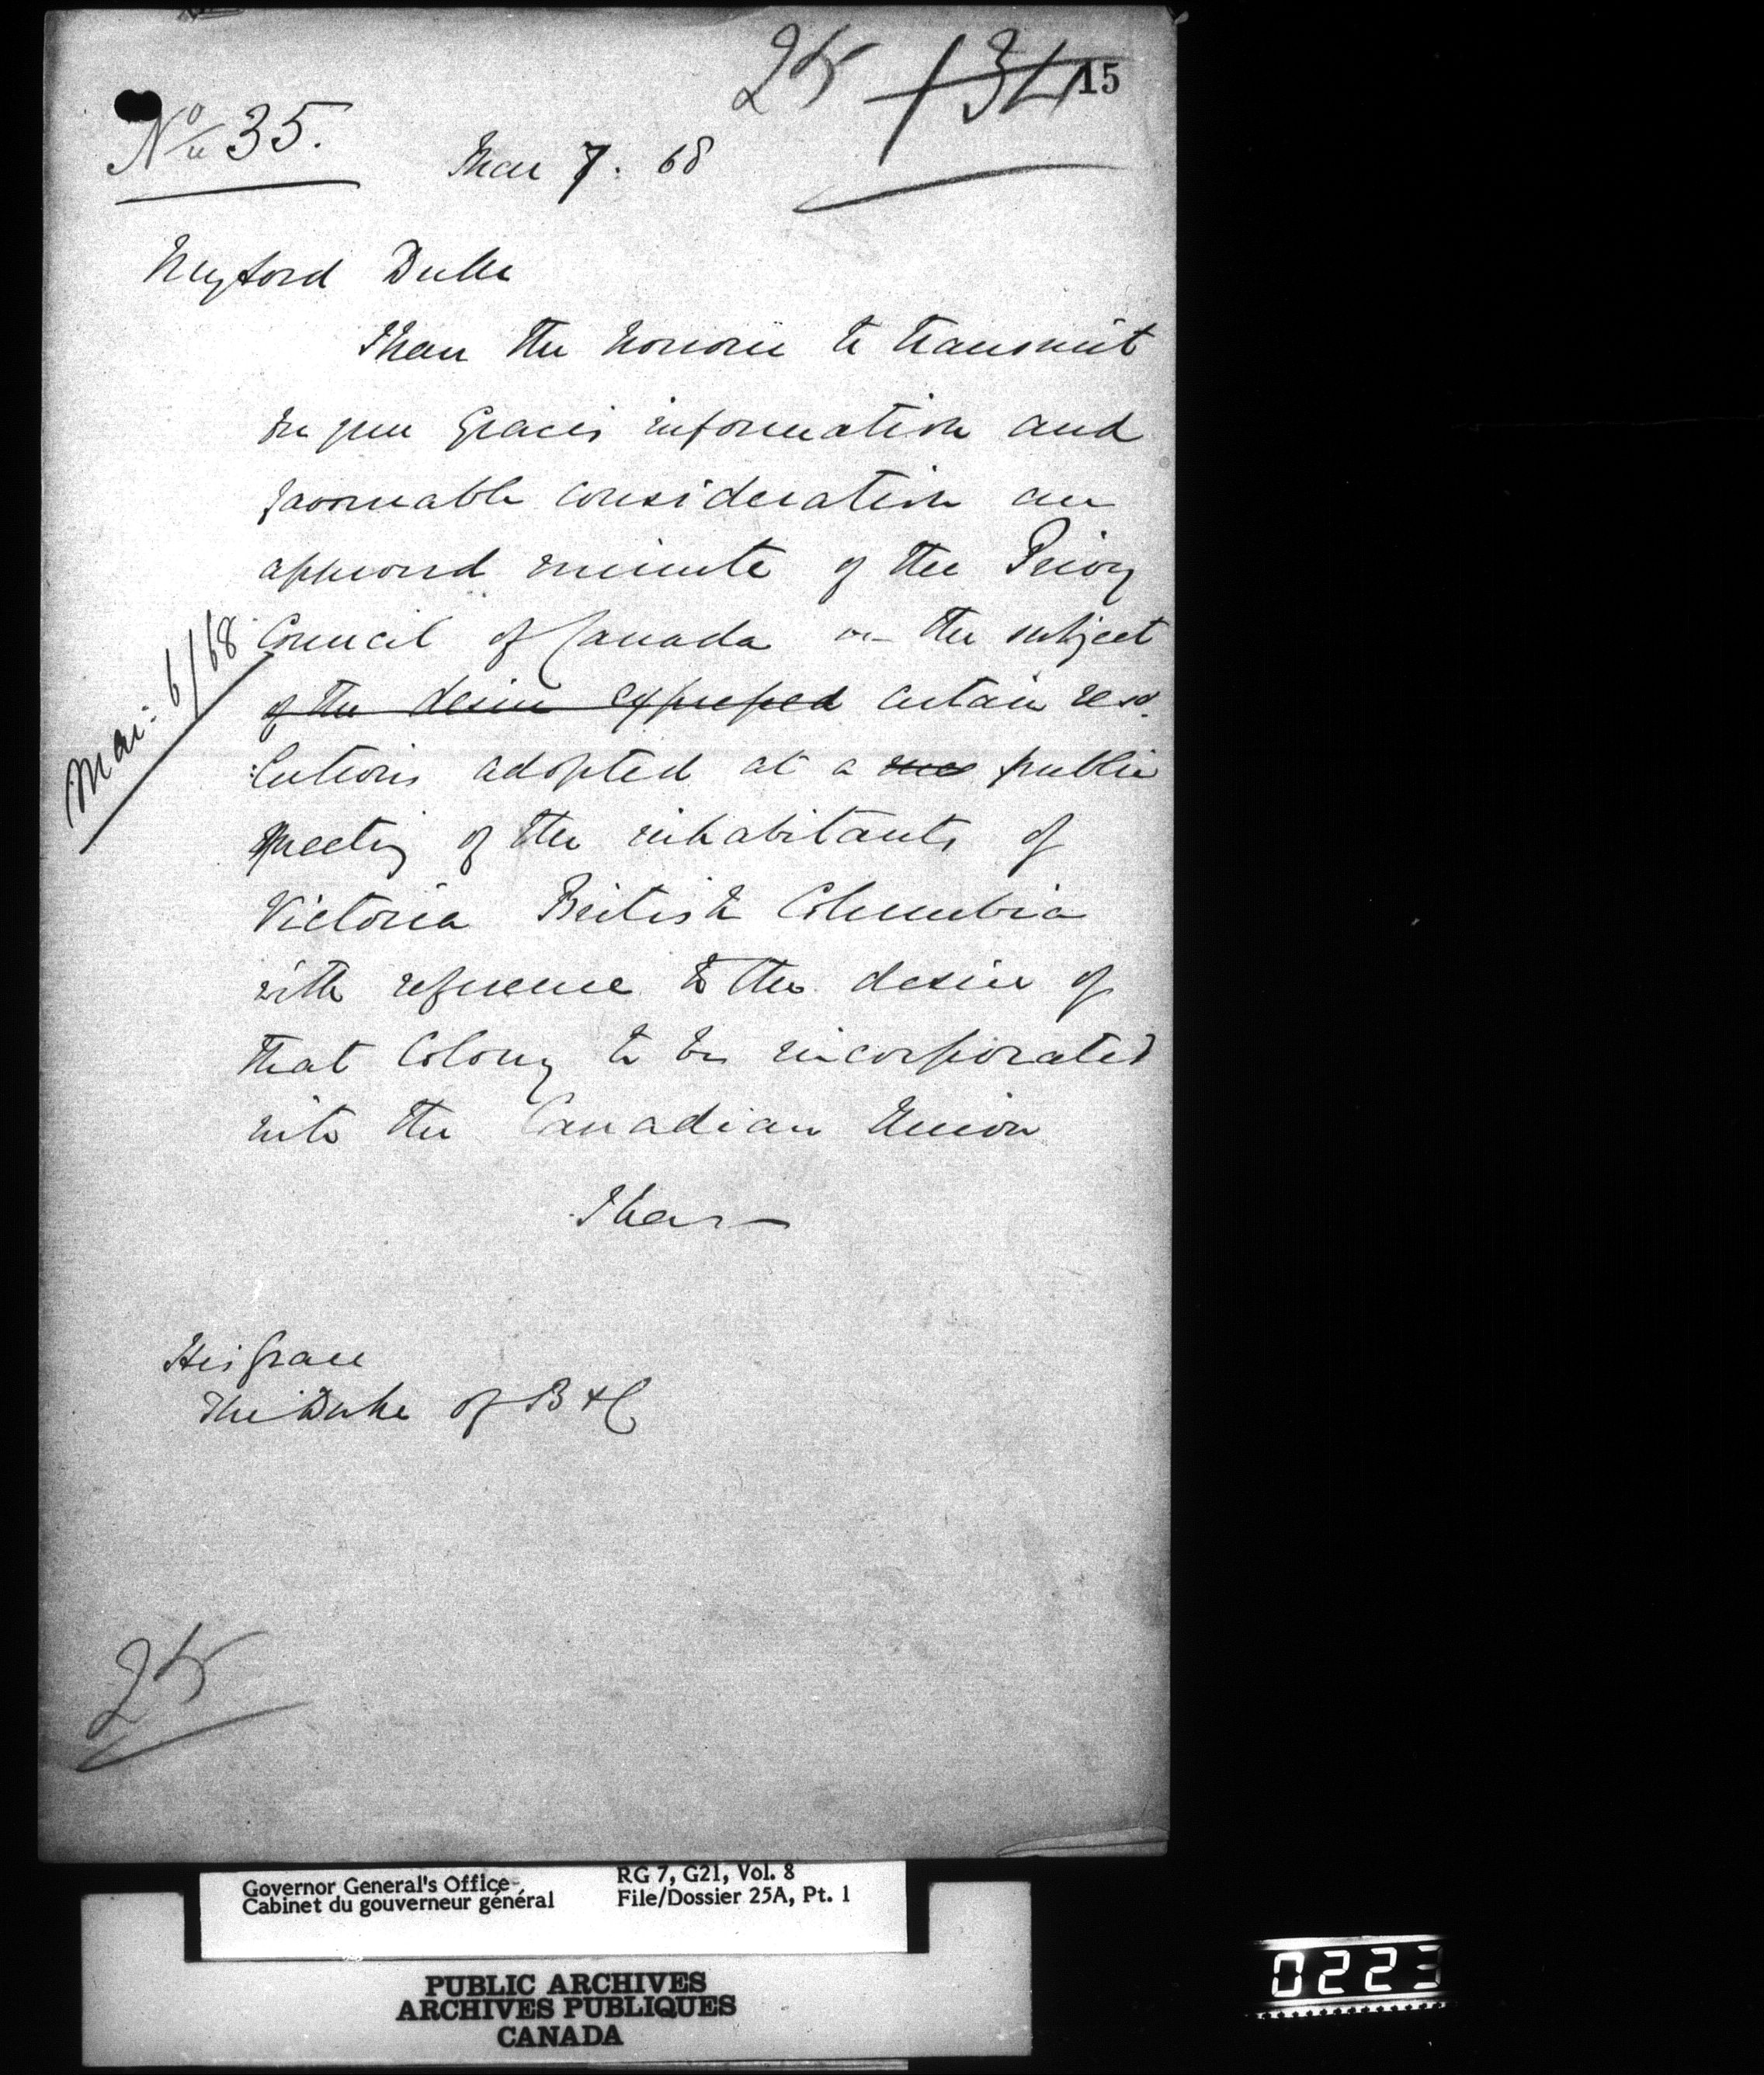 25 134 15
No. 35.
Mar 7. 68
My Lord Duke
I have the honour to transmit
for your Grace's information and
favourable consideration an
approved minute of the Privy
Mar: 6/68
Council of Canada on the subject
of the desire expressed certain reso
:lutions adopted at a public
Meeting of the inhabitants of
Victoria British Columbia
with reference to the desire of
that Colony to be incorporated
into the Canadian Union
I have
His Grace
The Duke of B & C
25
Governor General's Office
Cabinet du gouverneur général
RG 7, G21, Vol. 8
File/Dossier 25A, Pt. 1
PUBLIC ARCHIVES
ARCHIVES PUBLIQUES
CANADA
0223